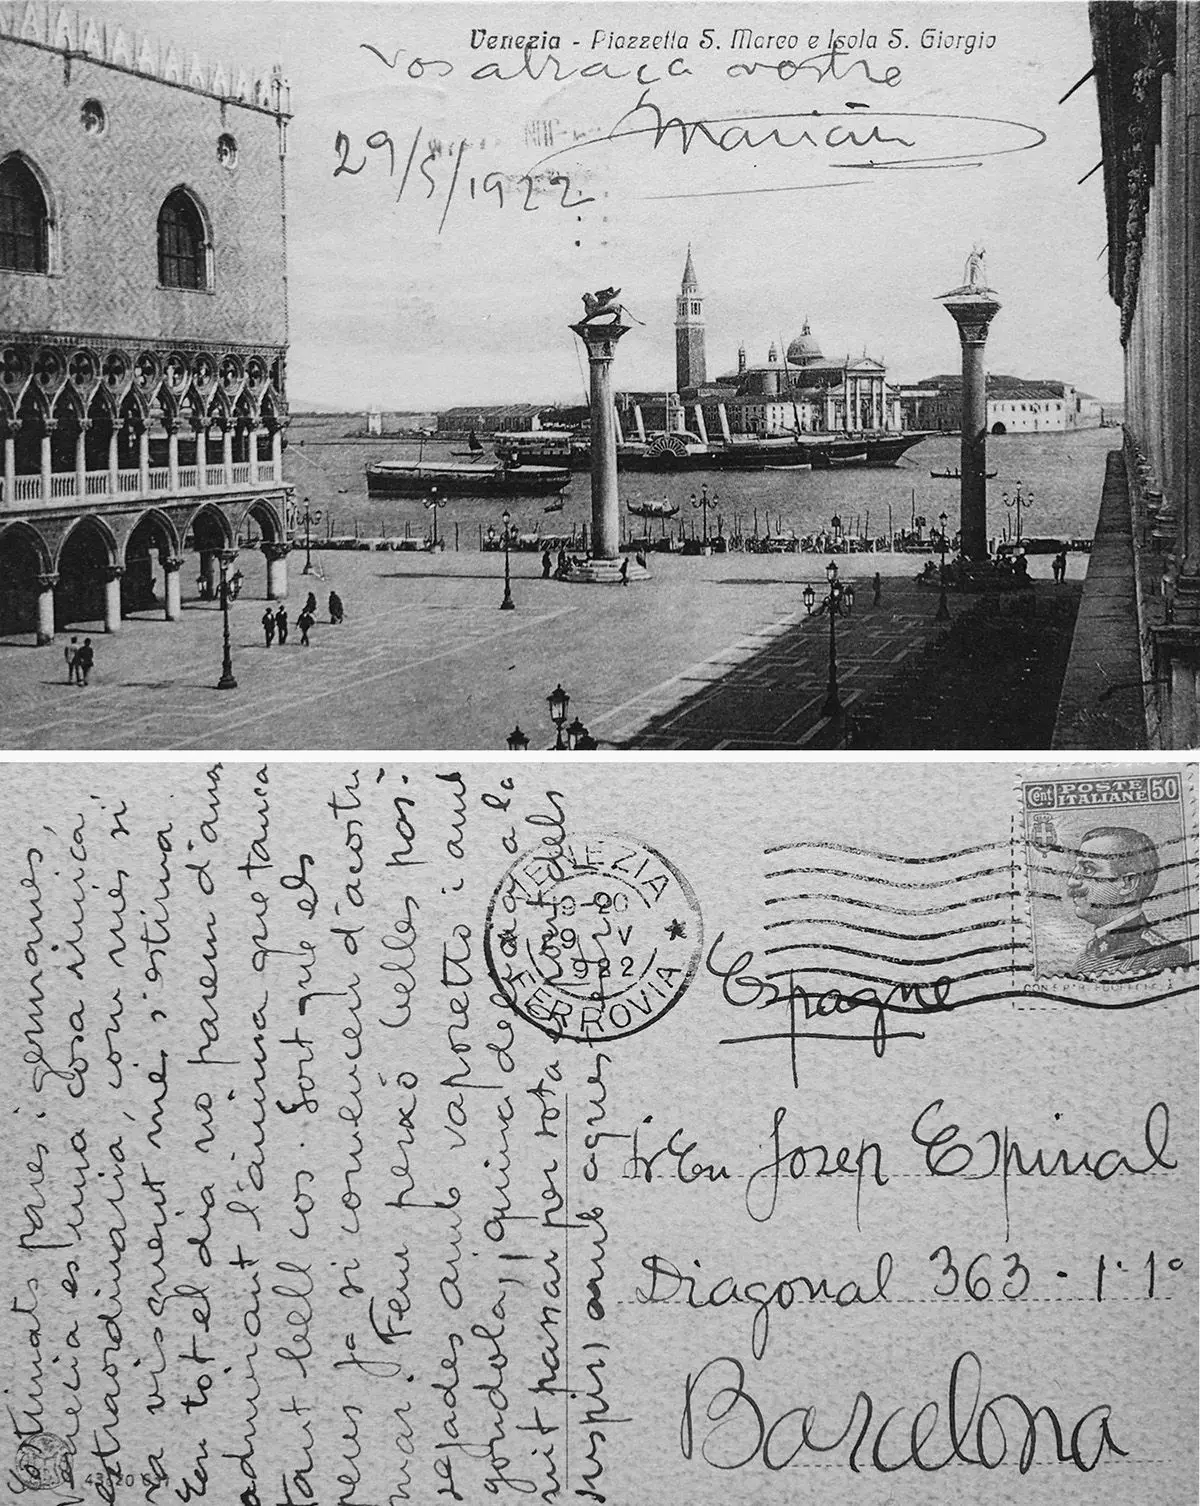 Venezia - Piazzetta S. Marco e Isola S. Giorgio
Vos abraça vostre
29/5/1922
Estimats pares i germanes,
Venecia es una cosa única,
extraordinaria, com mes si
va visquent mes, s'estima.
En tot el dia no parem d'ana
admirant l'ànima que tanca
tant bell cos. Sort que els
peus ja si comencen d'acostu
mar. Fem perxò belles pas-
sejades amb vaporetto i amb
gondola, i quina a la
nit passar per sota pont dels
suspirs, amb aquest
VENEZIA
19-20
9 V
1922
FERROVIA
Cent POSTE ITALIANE 50
Espagne
Sr En Josep Espinal
Diagonal 363 - 1. 1º
Barcelona